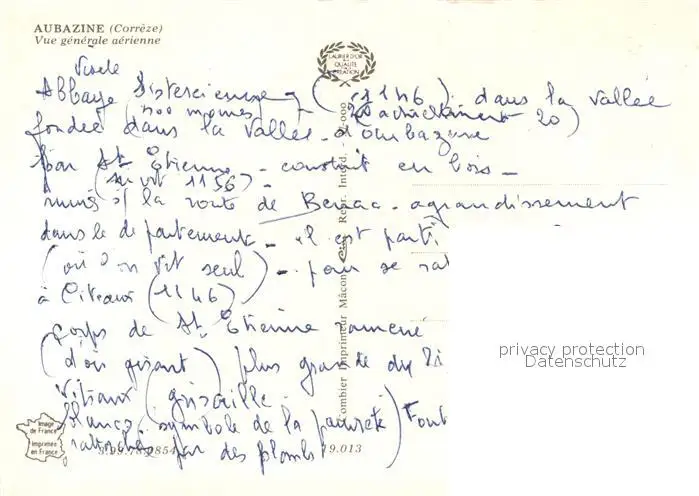 AUBAZINE (Corrèze)
Vue générale aérienne
LAURIER D'OR
DE LA
QUALITÉ
CRÉATION
Visite
Abbaye Cistercienne (1146) dans la vallée
(100 moines actuellement 20)
fondée dans la vallée d'Aubazine
par St Etienne - construit en bois -
(suivit 1156) -
la route de - agrandissement
dans le département - il est parti
(où l'on vit seul) - pour se rat
à Citeaux (1146)
Corps de St Etienne ramené
(d'où gisant) plus grande du Li
Vitraux (grisaille
blancs, symbole de la paureté) Tout
rattachés par des plombs
Combier Imprimeur Mâcon Repr. Interd.
Image
de France
Imprimée
en France
19.013
privacy protection
Datenschutz